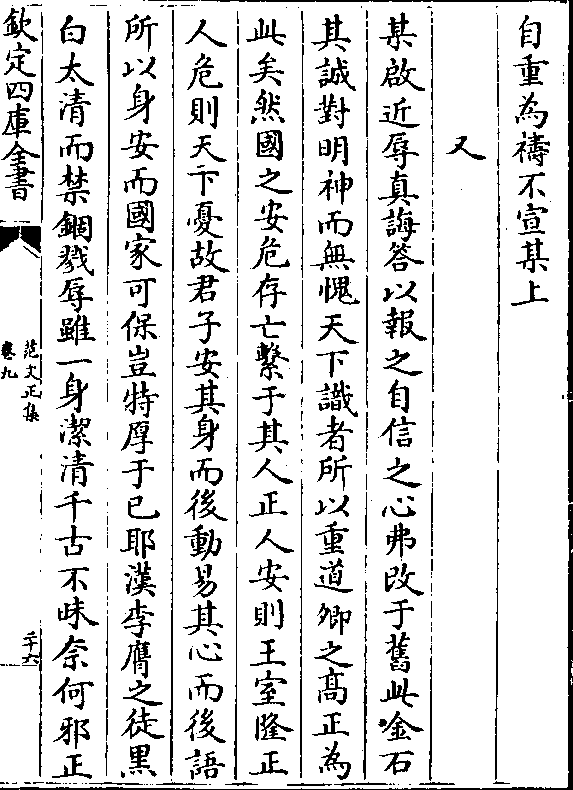 自重為禱不宣某上
又
某啟近辱真誨答以報之自信之心弗改于舊此金石
其誠對明神而無愧天下識者所以重道卿之髙正為
此矣然國之安危存亡繫于其人正人安則王室隆正
人危則天下憂故君子安其身而後動易其心而後語
所以身安而國家可保豈特厚于已耶漢李膺之徒黒
白太清而禁錮戮辱雖一身潔清千古不昧奈何邪正
欽定四庫全書
范文正集
卷九
二十六